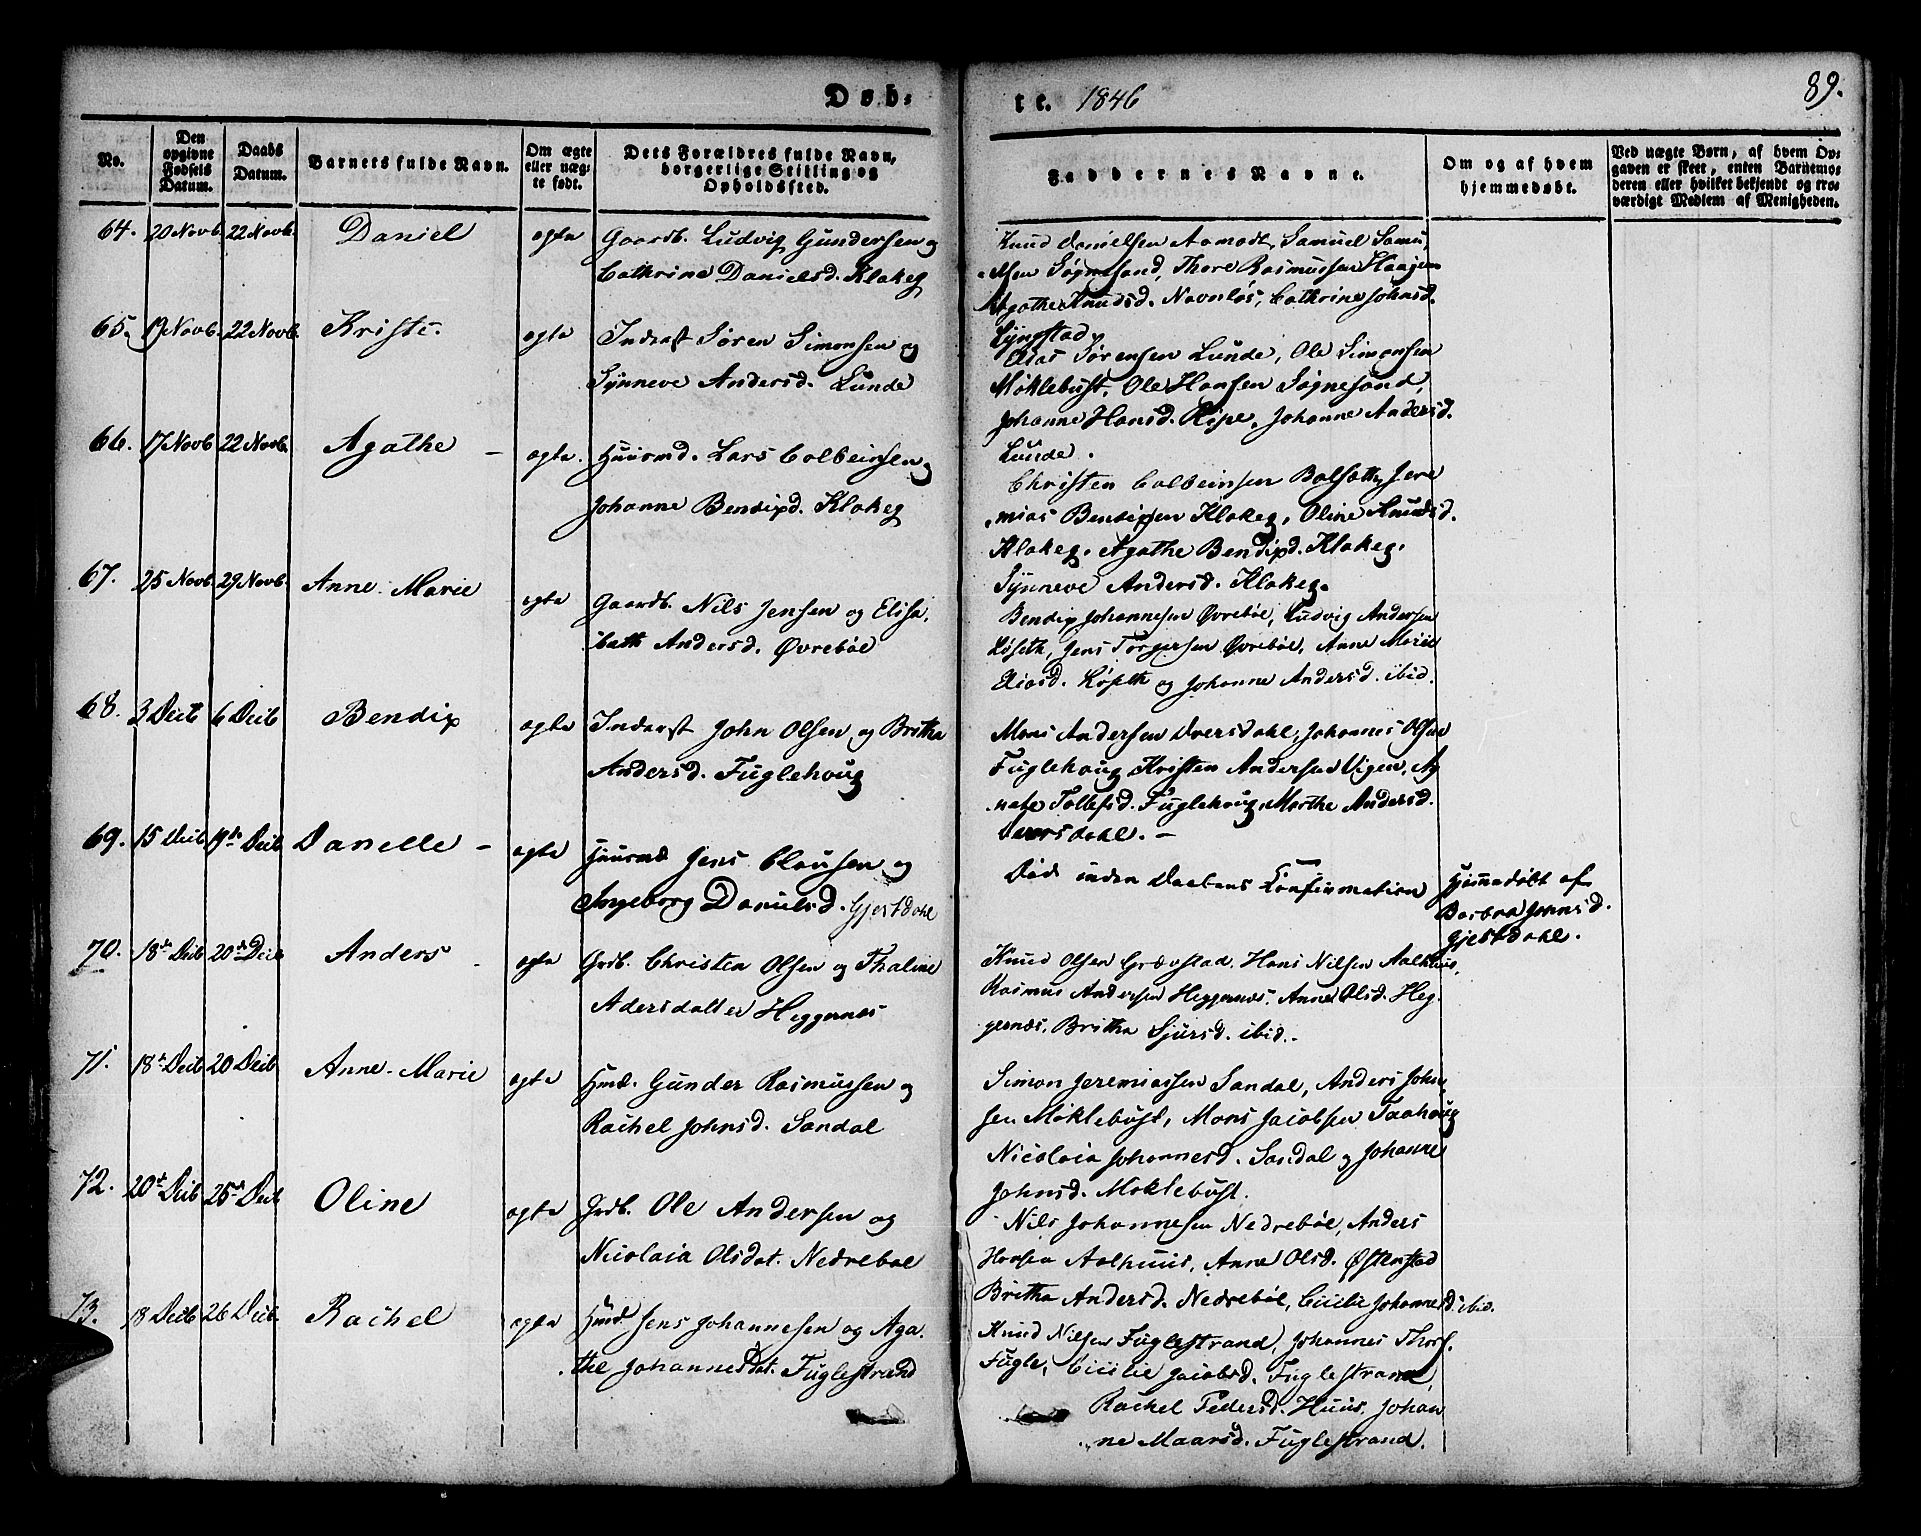 Døb-
te. 1846
89.
No.
Den opgivne Fødsels Datum.
Daabs Datum.
Barnets fulde Navn.
Om ægte eller uæg- te født.
Dets Forældres fulde Navn, borgerlige Stilling og Opholdssted.
Faddernes Navne.
Om og af hvem hjemmedøbt.
Ved uægte Børn, af hvem Op- gaven er skeet, enten Barnemo- deren eller hvilket bekjendt og tro- værdigt Medlem af Menigheden.
64. 20 Novb. 22 Novb. Daniel ægte Gaardb. Ludvig Gundersen og
Cathrine Danielsd. Klakeg
Knud Danielsen Aamodt, Samuel Samu,
elsen Søgnesand, Thore Rasmussen
Agathe Knudsd. Navnløs, Cathrine Johnsd.
Lyngstad
65. 19 Novb. 22 Novb. Kristi. ægte Inderst Søren Simonsen og
Synneve Andersd. Lunde
Elias Sørensen Lunde, Ole Simonsen
Møklebust, Ole Hansen Søgnesand,
Johanne Hansd. Ripe, Johanne Andersd.
Lunde.
66. 17 Novb 22 Novb. Agathe - ægte. Huusmd. Lars Colbeinsen og
Johanne Bendixd. Klakeg
Christen Colbeinsen Bolsæth, Jere
mias Bendixen Klakeg, Oline Knudsd.
Klakeg, Agathe Bendixd. Klakeg,
Synneve Andersd. Klakeg.
67. 25 Novb. 29 Novb. Anne-Marie ægte Gaardb. Nils Jensen og Elisa,
bath Andersd. Øvrebøe
Bendix Johannesen Øvrebøe, Ludvig Andersen
Løseth, Jens Torgersen Øvrebøe, Anne Marie
Eliasd. Løseth og Johanne Andersd. ibid.
68. 3 Decb 6 Decb Bendix ægte Inderst John Olsen og Britha
Andersd. Fuglehoug
Mons Andersen Dversdahl, Johannes Olsen
Fuglehoug, Kristen Andersen Vigen, Ag
nate Tollefsd. Fuglehoug, Marthe Andersd.
Dversdahl. -
69. 15 Decb. 19de Decb Danelle - ægte Huusmd Jens Clausen og
Ingeborg Danielsd. Gjestdahl
Død inden Daabens Confirmation
Hjemmedøbt af
Barbra Johnsd.
Gjestdahl.
70. 18de Decb 20de Decb Anders - ægte Grdb. Christen Olsen og Thaline
Adersdatter Heggernes
Knud Olsen Grævstad, Hans Nilsen Aalhuus,
Rasmus Andersen Heggernæs, Anne Olsd. Heg,
gernæs, Britha Sjursd. ibid.
71. 18de Decb 20 Decb Anne-Marie ægte Hmd. Gunder Rasmussen og
Rachel Johnsd. Sandal
Simon Jeremiassen Sandal, Anders John
sen Møklebust, Mons Jacobsen Taahoug
Nicolaia Johannesd. Sandal og Johanne
Johnsd. Møklebust.
72. 20de Decb 25de Decb Oline ægte Grdb. Ole Andersen og
Nicolaia Olsdat. Nedrebøe
Nils Johannesen Nedrebøe, Anders
Hansen Aalhuus, Anne Olsd. Østenstad
Britha Andersd. Nedrebøe, Cicilie Johannesd. ibid.
73. 18 Decb 26 Decb. Rachel ægte Hmd. Jens Johannesen og Aga,
the Johannesdat. Fuglestrand
Knud Nilsen Fuglestrand, Johannes Thors.
Fugle, Cicilie Jacobsd. Fuglestrand,
Rachel Pedersd. Huus, Johan
ne Maarsd. Fuglestrand.